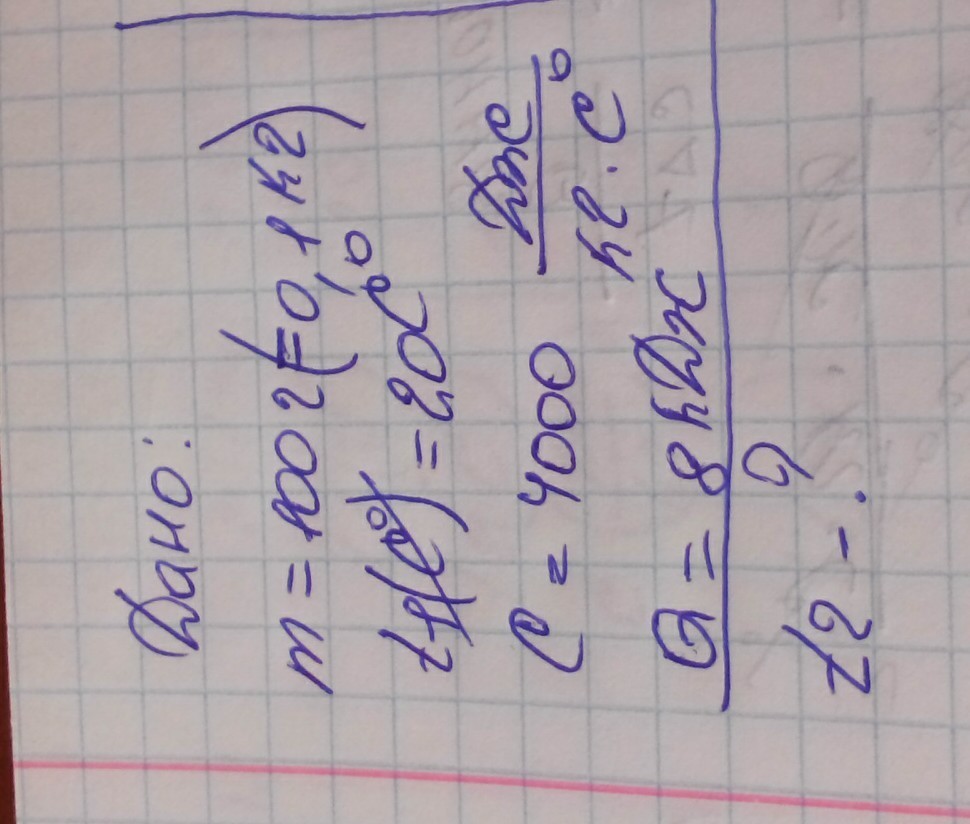 Дано:
m = 100 г (= 0,1 кг)
t1 = 20C°
c = 4000 Дж
кг · C°
Q = 8 кДж
t2 - ?